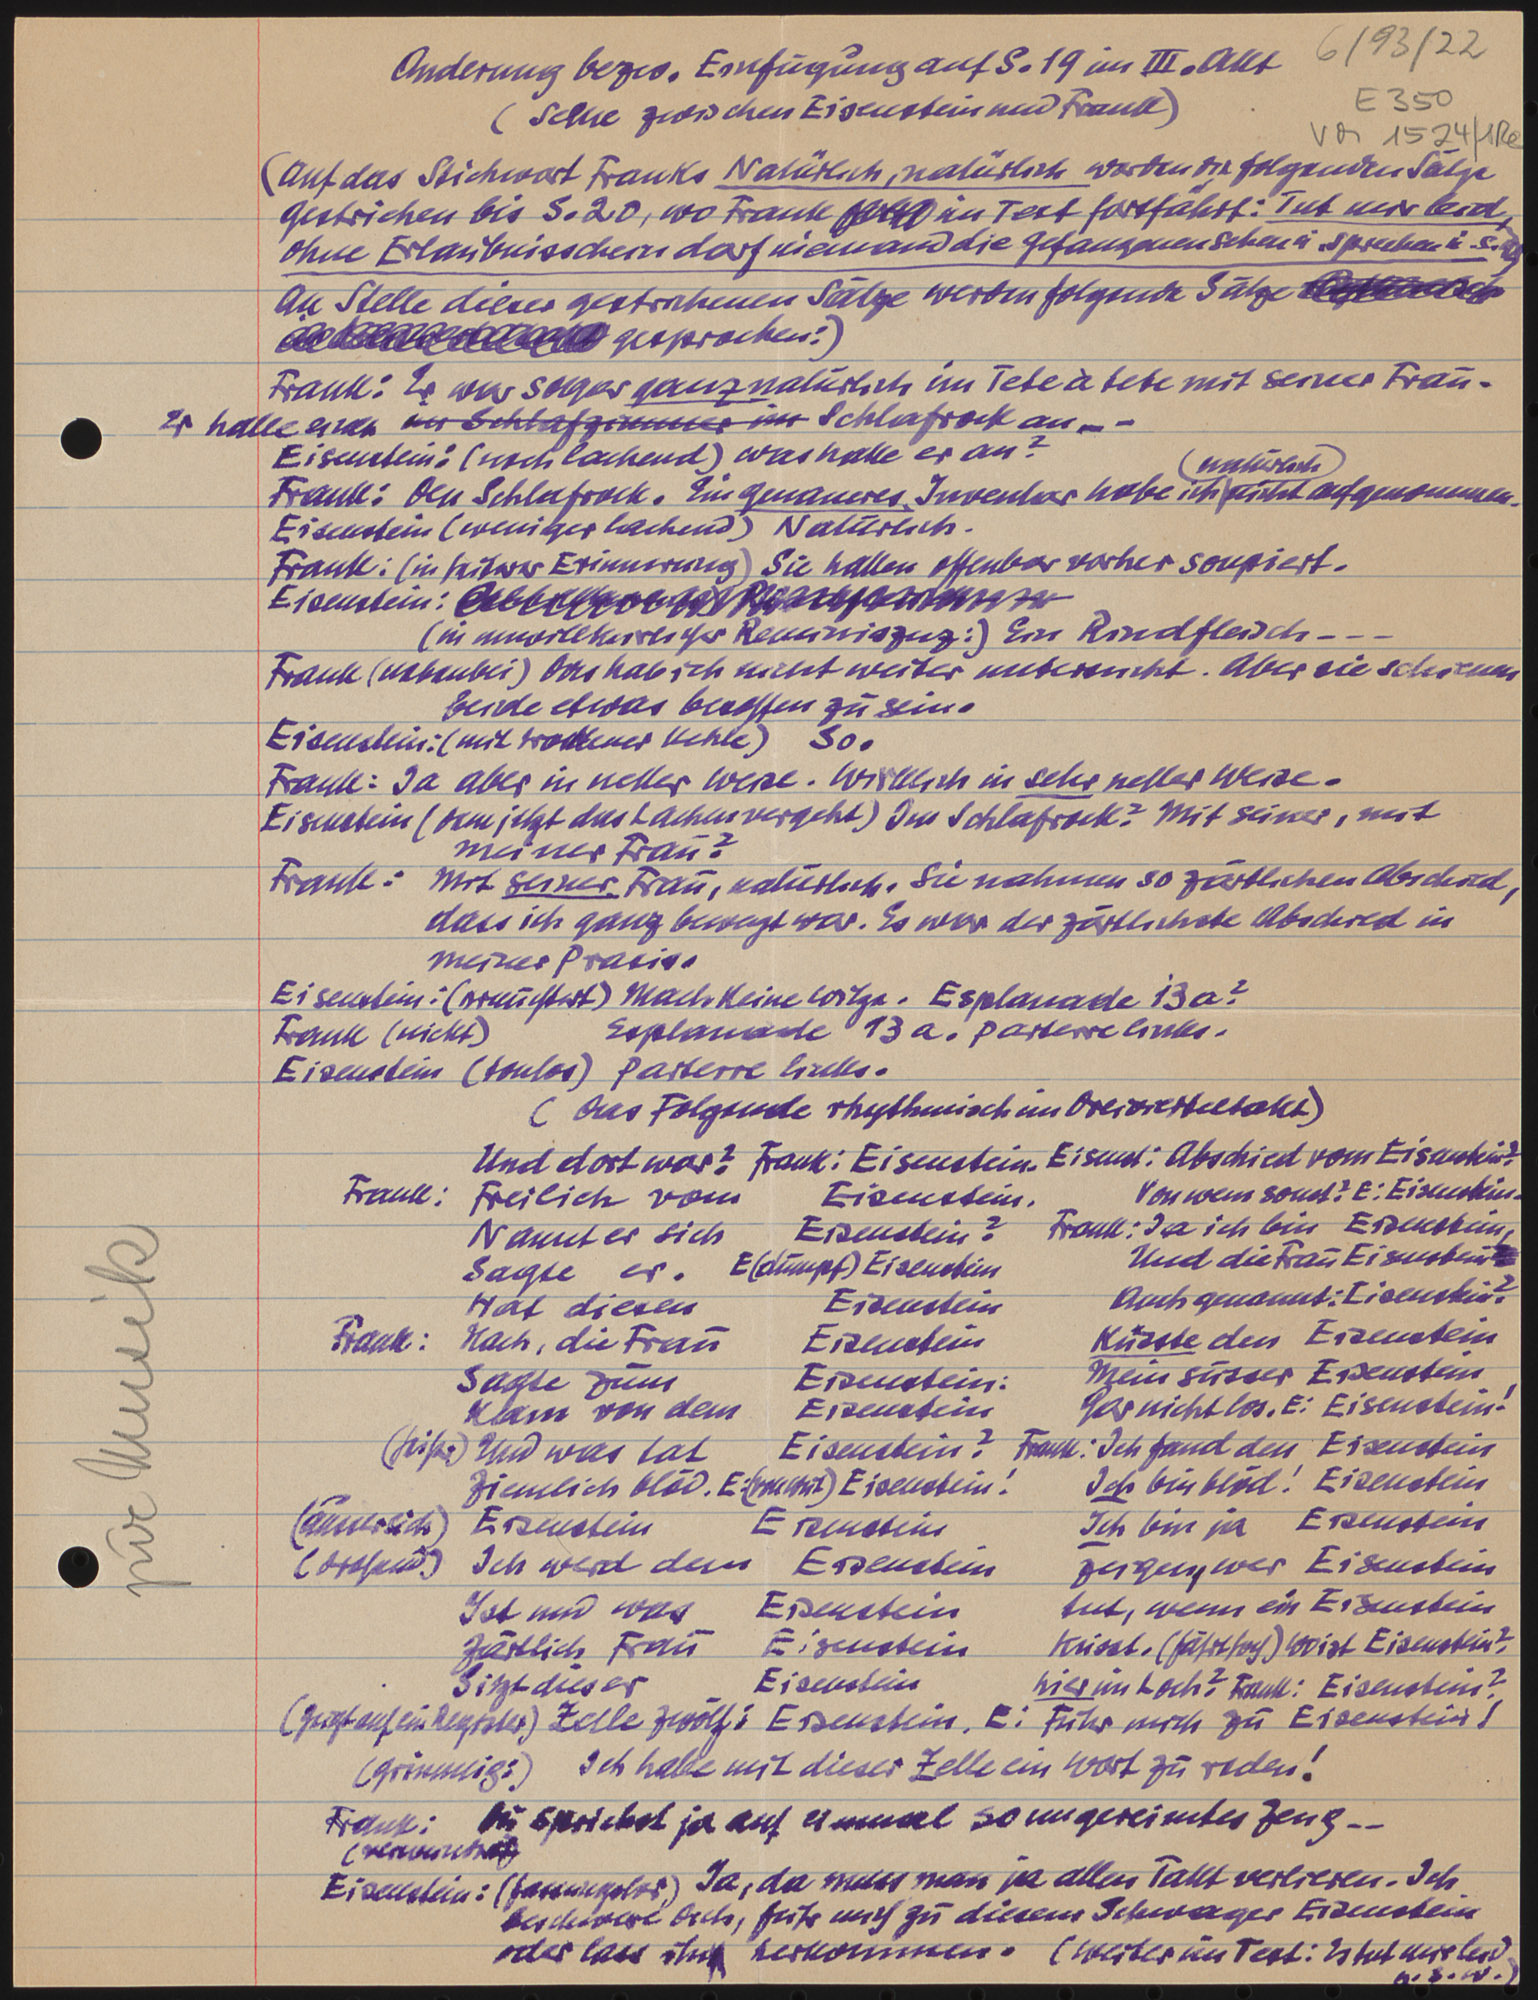 6/93/22
E 350
Änderung bezw. Einfügung auf S. 19 im III. Akt
(Scene zwischen Eisenstein und Frank)
(Auf das Stichwort Franks Natürlich, natürlich werden die folgenden Sätze
gestrichen bis S. 20, wo Frank im Text fortfährt: Tut mir leid,
ohne Erlaubnisschein darf niemand die Gefangenen sehen u. sprechen u. s. w.
An Stelle dieser gestrichenen Sätze werden folgende Sätze
gesprochen:)
Frank: Er war sogar ganz natürlich im Tete à tete mit seiner Frau -
Er hatte einen im Schlafzimmer im Schlafrock an - -
Eisenstein: (noch lachend) was hatte er an?
(natürlich)
Frank: Den Schlafrock. Ein genaueres Inventar habe ich nicht aufgenommen.
Eisenstein (weniger lachend) Natürlich.
Frank: (in heiterer Erinnerung) Sie hatten offenbar vorher soupiert.
Eisenstein:
(in unwillkürlicher Reminiszenz:) Ein Rindfleisch - - -
Frank (nebenbei) Das hab ich nicht weiter untersucht. Aber sie schienen
beide etwas besoffen zu sein.
Eisenstein: (mit trockener Kehle) So.
Frank: Ja aber in netter Weise. Wirklich in sehr netter Weise.
Eisenstein (dem jetzt das Lachen vergeht) Im Schlafrock? Mit seiner, mit
meiner Frau?
Frank: Mit seiner Frau, natürlich. Sie nahmen so zärtlichen Abschied,
dass ich ganz bewegt war. Es war der zärtlichste Abschied in
meiner Praxis.
Eisenstein: Mach keine Witze. Esplanade 13a?
Frank (nickt) Esplanade 13a. parterre links.
Eisenstein (tonlos) parterre links.
(Das Folgende rhythmisch im Dreivierteltakt)
Und dort war? Frank: Eisenstein. Eisenst: Abschied vom Eisenstein?
Frank: Freilich vom Eisenstein. Von wem sonst? E: Eisenstein.
Nannt er sich Eisenstein? Frank: Ja ich bin Eisenstein,
Sagte er. E (dumpf) Eisenstein Und die Frau Eisenstein
Hat diesen Eisenstein Auch genannt: Eisenstein?
Frank: Nach, die Frau Eisenstein Küsste den Eisenstein
Sagte zum Eisenstein: Mein süsser Eisenstein
Kam von dem Eisenstein Gar nicht los. E: Eisenstein!
Und was tat Eisenstein? Frank: Ich fand den Eisenstein
Ziemlich blöd. E: Eisenstein! Ich bin blöd! Eisenstein
(ausser sich) Eisenstein Eisenstein Ich bin ja Eisenstein
(drohend) Ich werd dem Eisenstein zeigen, wer Eisenstein
Ist und was Eisenstein tut, wenn ein Eisenstein
Zärtlich Frau Eisenstein Küsst. Wo ist Eisenstein?
Sitzt dieser Eisenstein hier im Loch? Frank: Eisenstein?
(Zeigt auf ein Register) Zelle zwölf: Eisenstein. E: Führ mich zu Eisenstein!
(grimmig:) Ich habe mit dieser Zelle ein Wort zu reden!
Frank: Du sprichst ja auf einmal so ungereimtes Zeug - -
(verwundert)
Eisenstein: (fassungslos,) Ja, da muss man ja allen Takt verlieren. Ich
beschwere Dich, führ mich zu diesem Schwager Eisenstein
oder lass ihn herkommen. (Weiter im Text: Es tut mir leid
u. s. w.)
für Musik